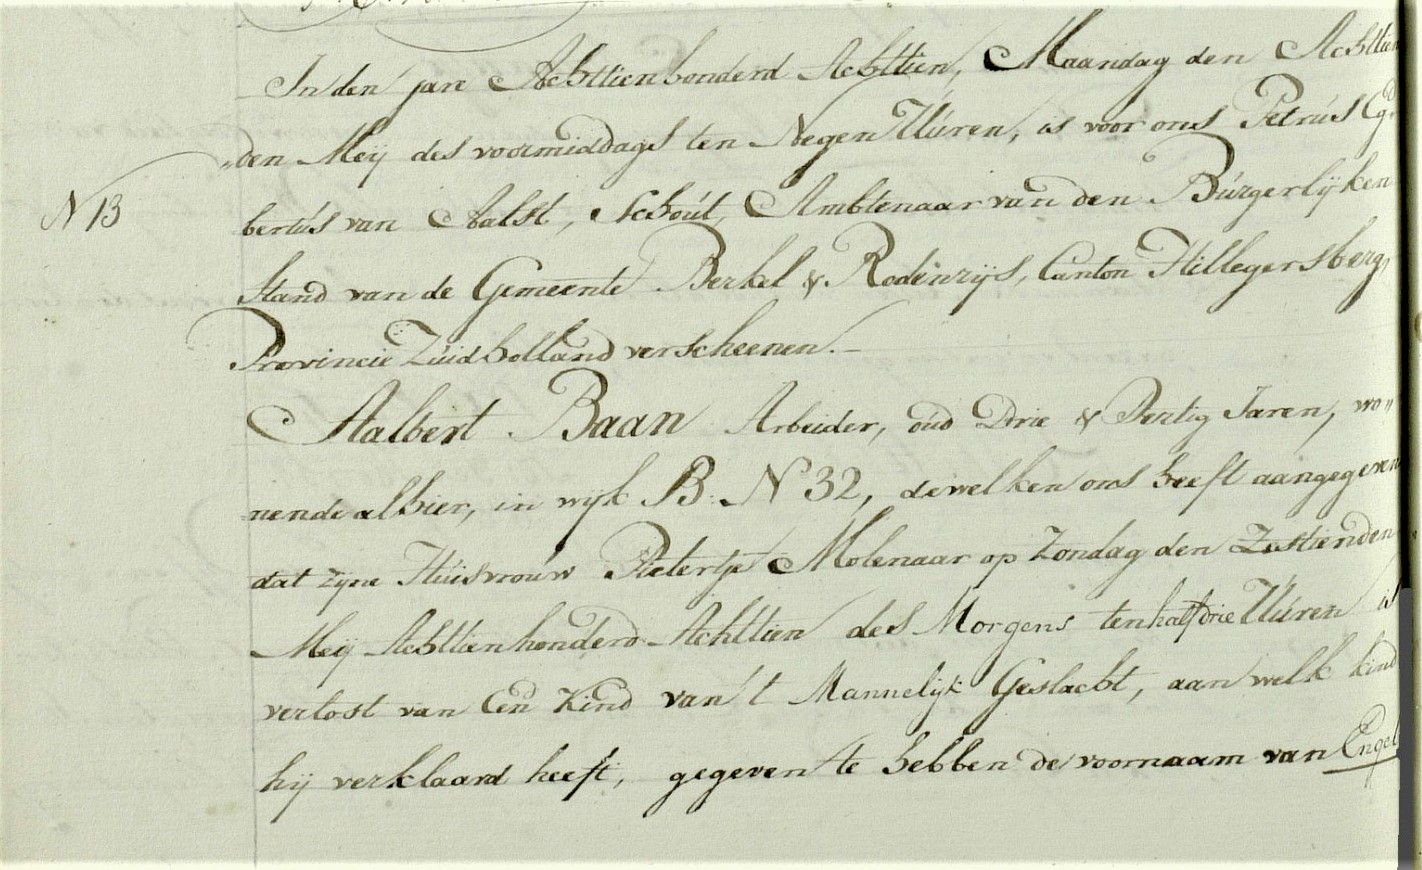 In den jare Achttienhonderd Achttien, Maandag den Achttien
„den Meij des voormiddags ten Negen Uúren, is voor ons Petrús Eg„
N 13
bertús van Aalst, Schoút, Ambtenaar van den Búrgerlijken
Stand van de Gemeente Berkel & Rodenrijs, Canton Hillegersberg,
Provincie Zúidholland verscheenen.—
Aalbert Baan Arbeider, oúd Drie & Dertig Jaren, wo„
nende alhier, in wijk B. N 32, dewelken ons heeft aangegeven
dat zijne Húisvroúw Pietertje Molenaar op Zondag den Zestienden
Meij Achttienhonderd Achttien des Morgens ten half drie Uúren is
verlost van Een Kind van 't Mannelijk Geslacht, aan welk kind
hij verklaard heeft, gegeven te hebben de voornaam van Engel